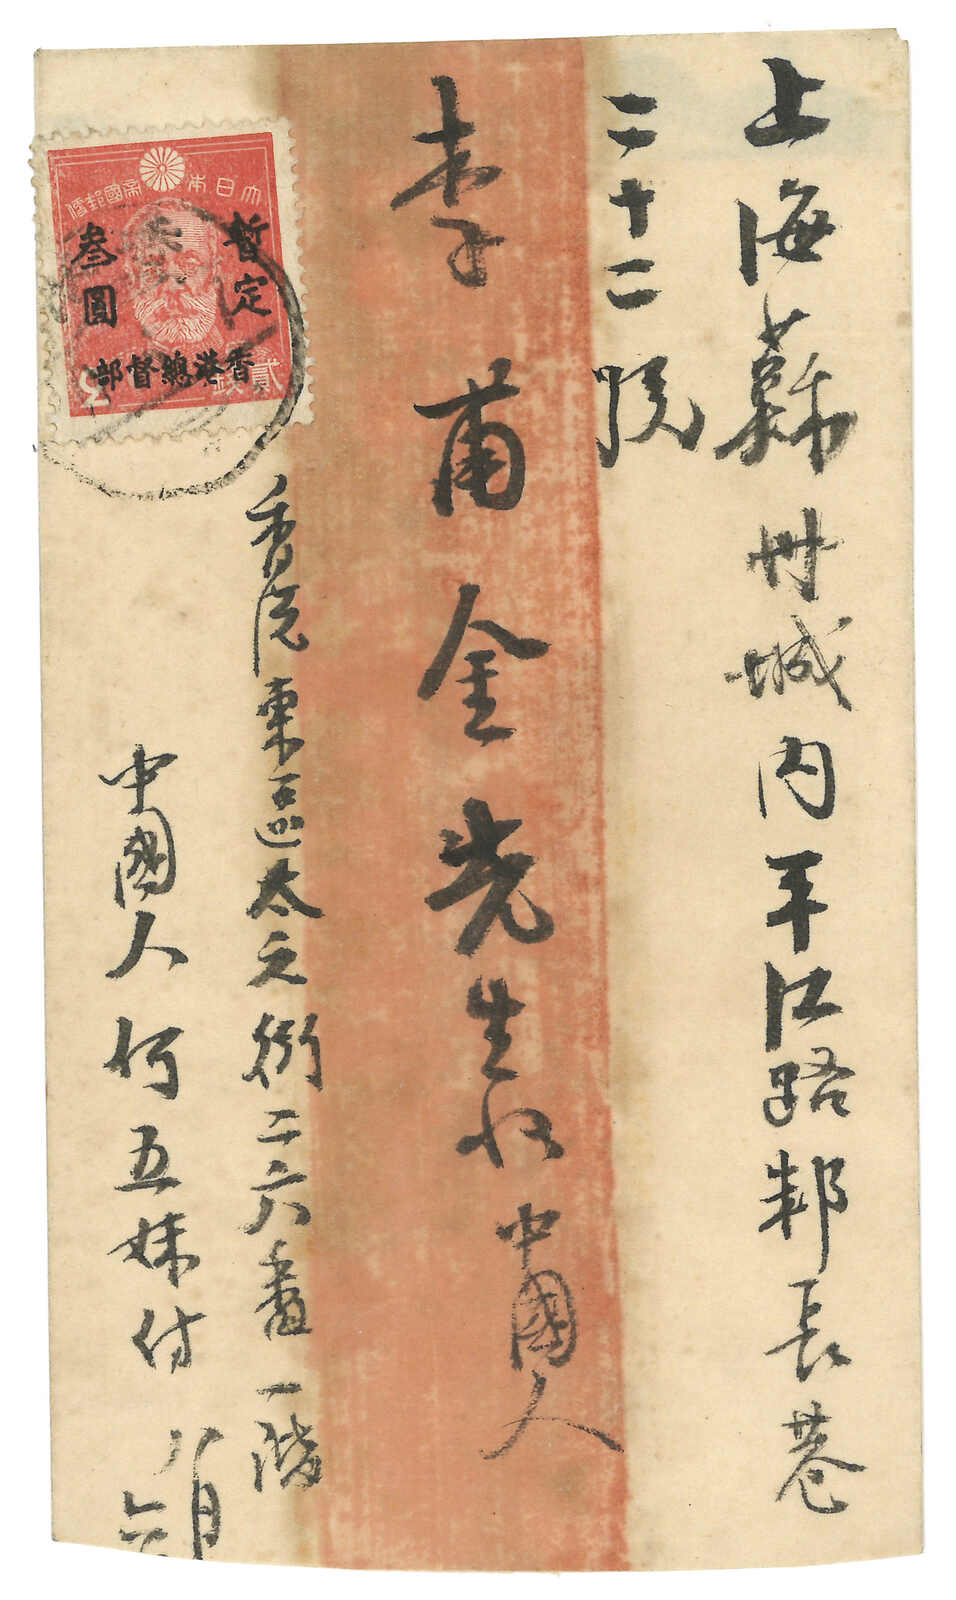 上海蘇州城內平江路邾長巷
二十二號
李甫金先生收 中國人
香港東區太元街二六番一階
中國人何五妹付
八月六
大日本帝國郵便
暫定
叁圓
香港總督部
貳錢